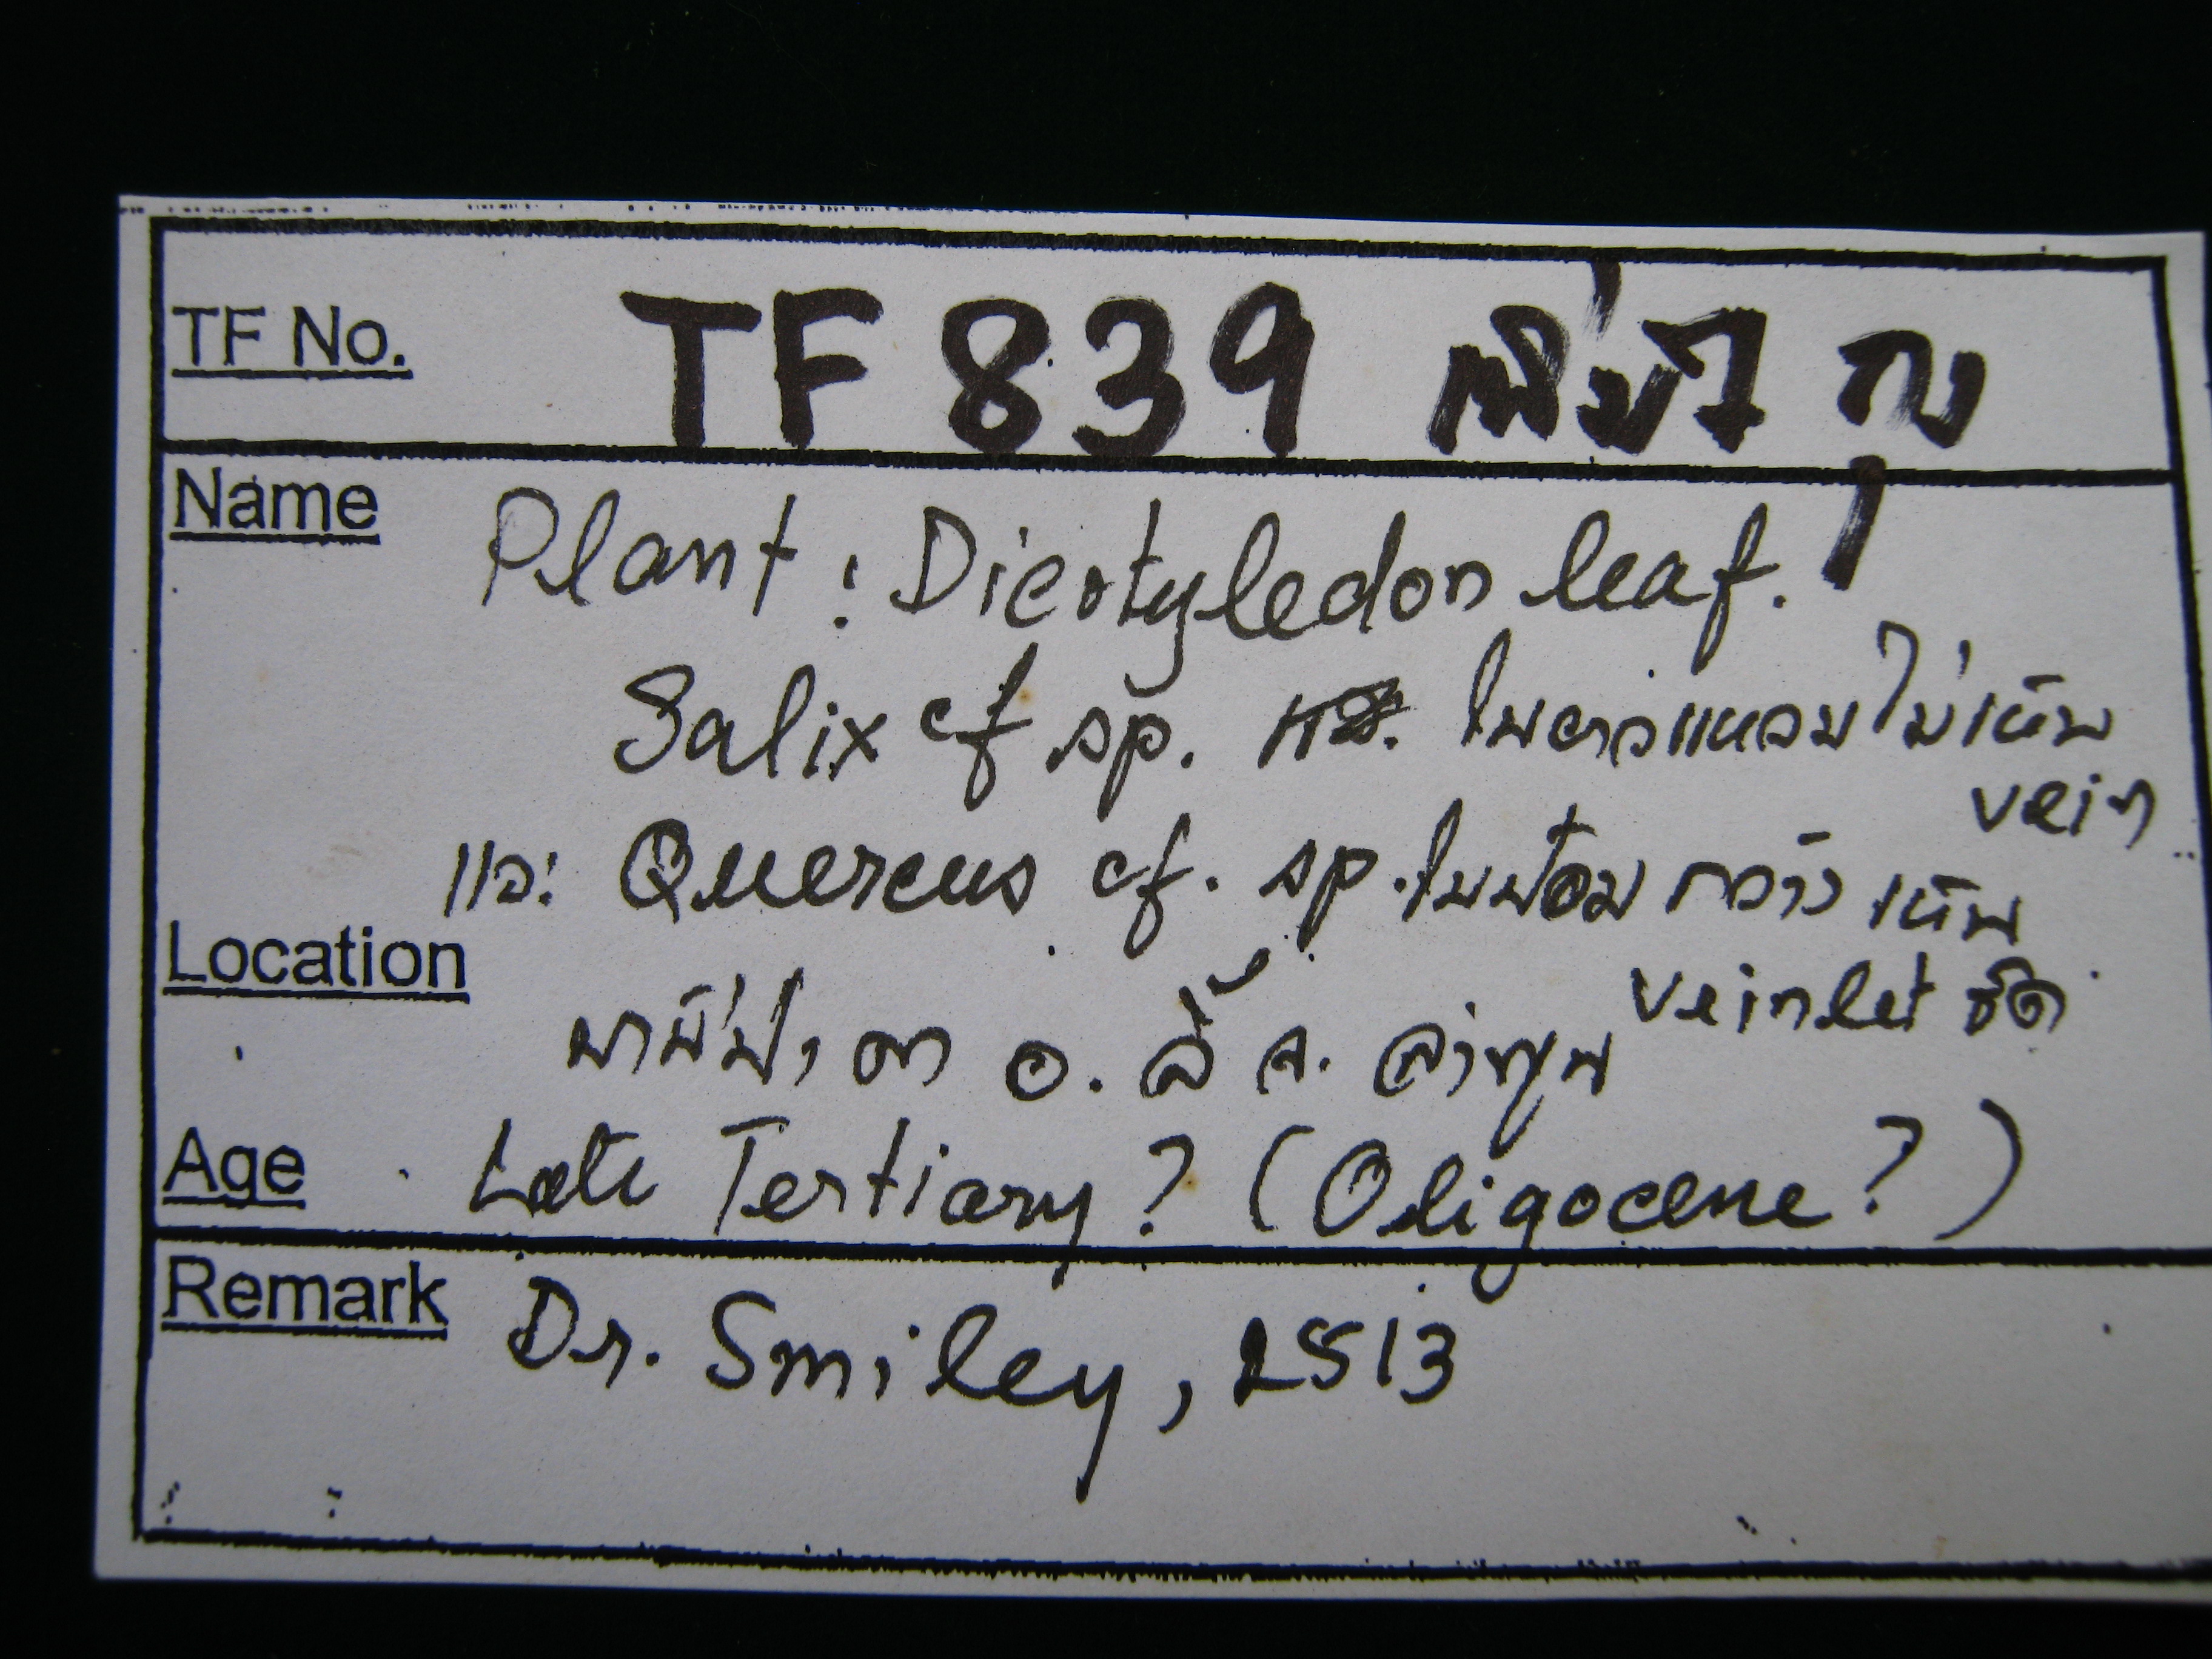 TF No. TF 839 เพิ่มรูป
Name Plant : Dicotyledon leaf.
Salix cf sp. ใบยาวแหลมไม่เห็น
vein
และ Quercus cf. sp. ใบป้อม กว้าง เห็น
veinlet ชัด
Location อ. ลี้ จ. ลำพูน
Age Late Tertiary ? (Oligocene ? )
Remark Dr. Smiley, 2513